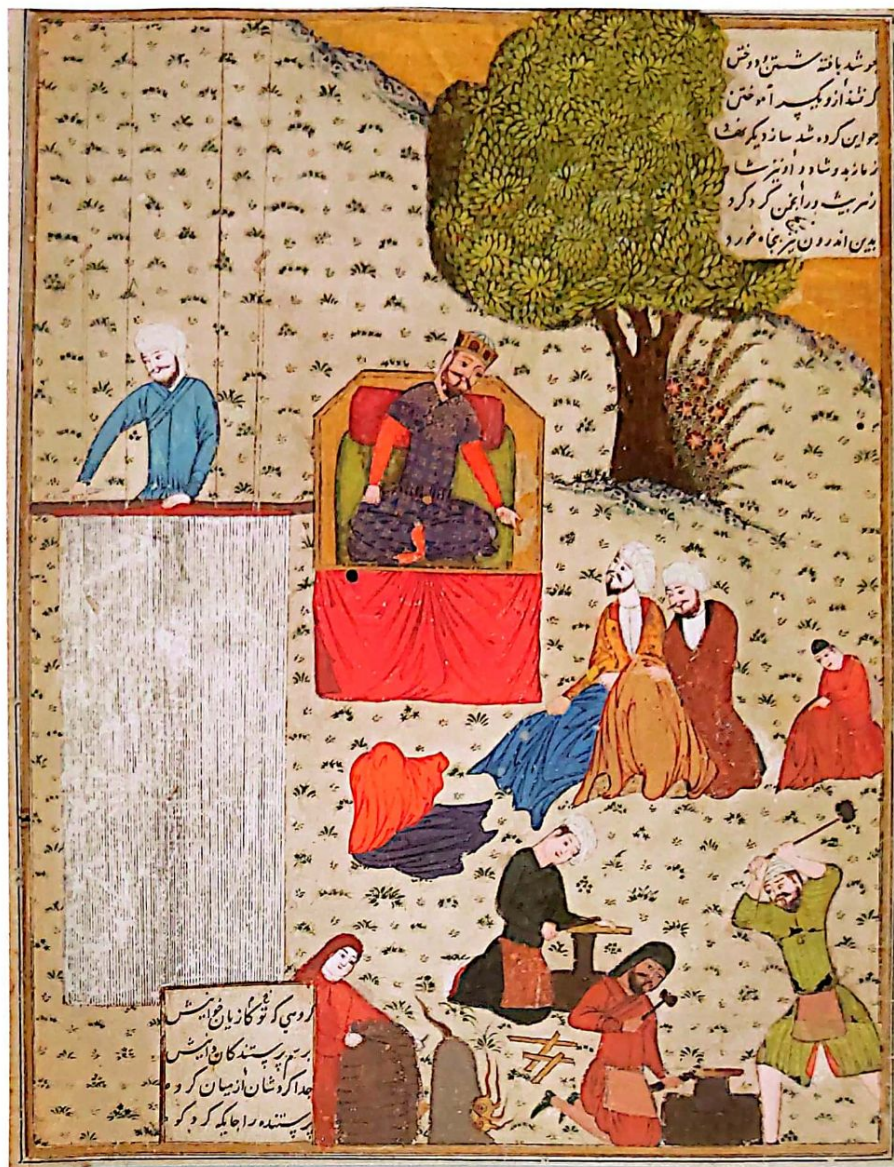 جو شد بافته شستن و دوختن
گرفتند ازو یکسر آموختن
جو این کرده شد ساز دیکر نهاد
زمانه بدو شاد و او نیز شاد
زهر پیشه ور انجمن گرد کرد
بدین اندرون نیز پنجاه خورد
گروهی که تو کازیان خوانیش
برسم پرستندکان دانیش
جدا کردشان از میان کروه
پرستنده را جایکه کرد کوه